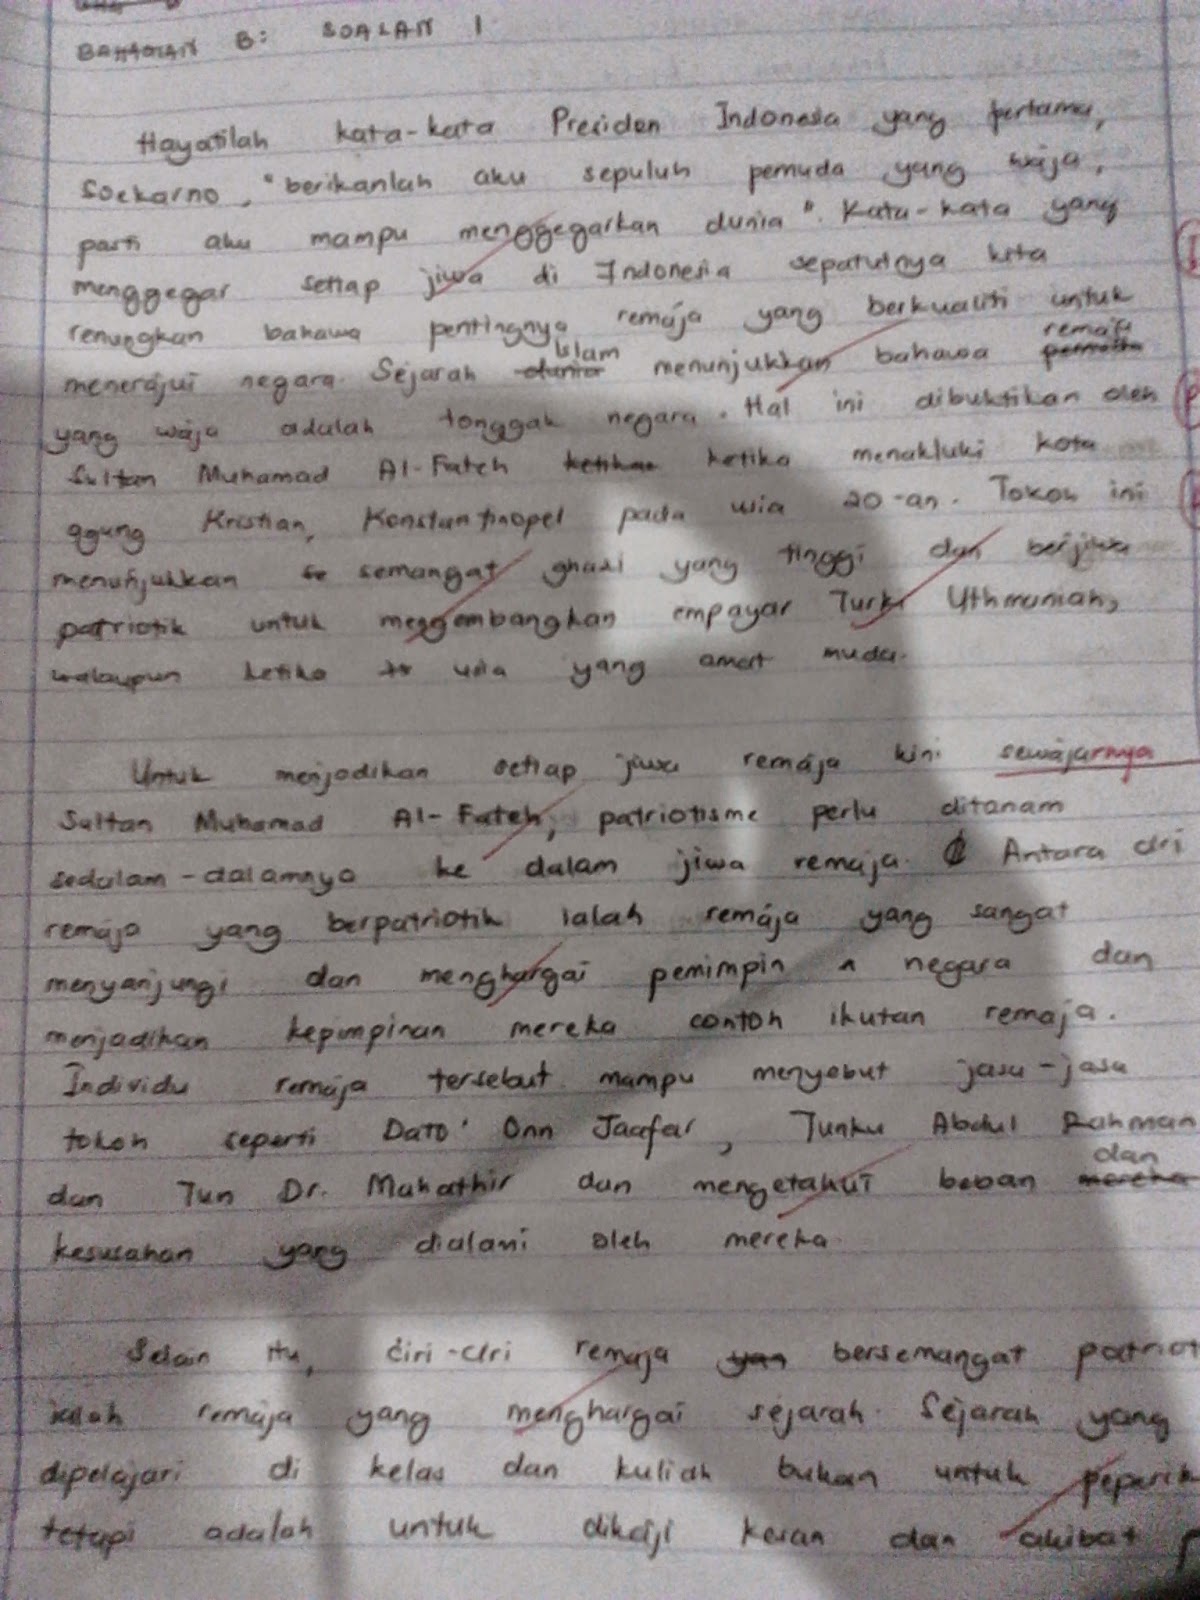 BAHAGIAN B: SOALAN 1
Hayatilah kata-kata Presiden Indonesia yang pertama,
Soekarno, "berikanlah aku sepuluh pemuda yang waja,
pasti aku mampu menggegarkan dunia". Kata-kata yang
menggegar setiap jiwa di Indonesia sepatutnya kita
renungkan bahawa pentingnya remaja yang berkualiti untuk
menerajui negara. Sejarah Islam menunjukkan bahawa remaja
yang waja adalah tonggak negara. Hal ini dibuktikan oleh
Sultan Muhamad Al-Fateh ketika menakluki kota
agung Kristian, Konstantinopel pada usia 20-an. Tokoh ini
menunjukkan semangat ghazi yang tinggi dan berjiwa
patriotik untuk mengembangkan empayar Turki Uthmaniah,
walaupun ketika usia yang amat muda.
Untuk menjadikan setiap jiwa remaja kini sewajarnya
Sultan Muhamad Al-Fateh, patriotisme perlu ditanam
sedalam-dalamnya ke dalam jiwa remaja. Antara ciri
remaja yang berpatriotik ialah remaja yang sangat
menyanjungi dan menghargai pemimpin negara dan
menjadikan kepimpinan mereka contoh ikutan remaja.
Individu remaja tersebut mampu menyebut jasa-jasa
tokoh seperti Dato' Onn Jaafar, Tunku Abdul Rahman
dan Tun Dr. Mahathir dan mengetahui beban dan
kesusahan yang dialami oleh mereka.
Selain itu, ciri-ciri remaja bersemangat patriot
ialah remaja yang menghargai sejarah. Sejarah yang
dipelajari di kelas dan kuliah bukan untuk peperik
tetapi adalah untuk dikaji kesan dan akibat